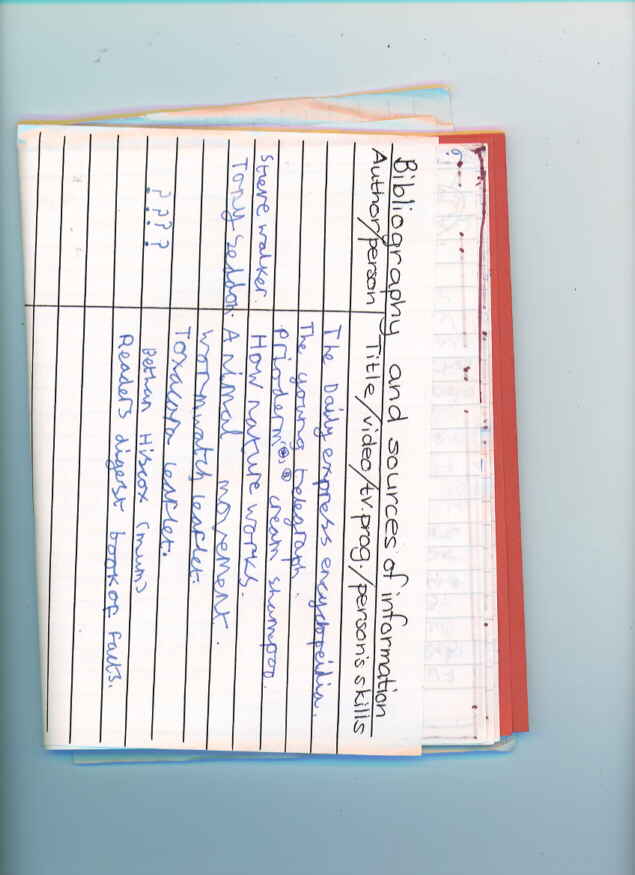 Bibliography and sources of information
Author/person Title/video/tv.prog./person's skills
The Daily express encyclopeidia.
The young telegraph.
prioderm cream shampoo.
Steve walker. How nature works.
Tony Seddon. Animal movement.
wormwatch leaflet.
Toxacara leaflet.
???? Bethan Hiscox (mum)
Readers digest book of facts.